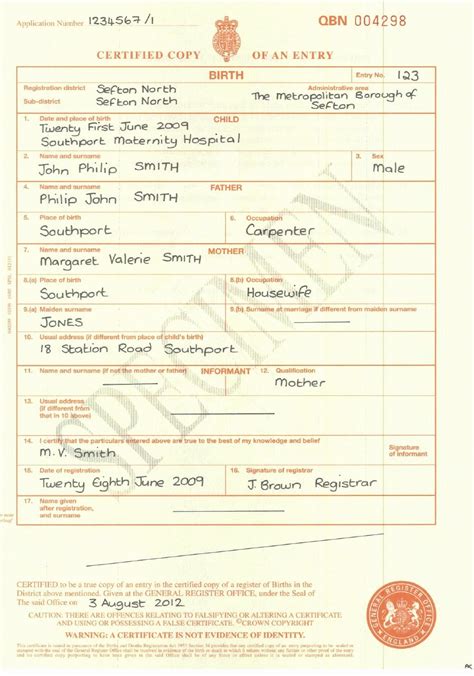 Application Number 1234567/1
QBN 004298
CERTIFIED COPY OF AN ENTRY
BIRTH
Entry No. 123
Registration district Sefton North
Administrative area
Sub-district Sefton North
The Metropolitan Borough of Sefton
1. Date and place of birth CHILD
Twenty First June 2009
Southport Maternity Hospital
2. Name and surname 3. Sex
John Philip SMITH Male
4. Name and surname FATHER
Philip John SMITH
5. Place of birth 6. Occupation
Southport Carpenter
7. Name and surname MOTHER
Margaret Valerie SMITH
8.(a) Place of birth 8.(b) Occupation
Southport Housewife
9.(a) Maiden surname 9.(b) Surname at marriage if different from maiden surname
JONES
10. Usual address (if different from place of child's birth)
18 Station Road Southport
11. Name and surname (if not the mother or father) INFORMANT 12. Qualification
Mother
13. Usual address
(if different from
that in 10 above)
14. I certify that the particulars entered above are true to the best of my knowledge and belief
M.V. Smith
Signature
of informant
15. Date of registration 16. Signature of registrar
Twenty Eighth June 2009 J. Brown Registrar
17. Name given
after registration,
and surname
SPECIMEN
CERTIFIED to be a true copy of an entry in the certified copy of a register of Births in the
District above mentioned. Given at the GENERAL REGISTER OFFICE, under the Seal of
The said Office on 3 August 2012
CAUTION: THERE ARE OFFENCES RELATING TO FALSIFYING OR ALTERING A CERTIFICATE
AND USING OR POSSESSING A FALSE CERTIFICATE. ©CROWN COPYRIGHT
WARNING: A CERTIFICATE IS NOT EVIDENCE OF IDENTITY.
GENERAL REGISTER OFFICE
ENGLAND